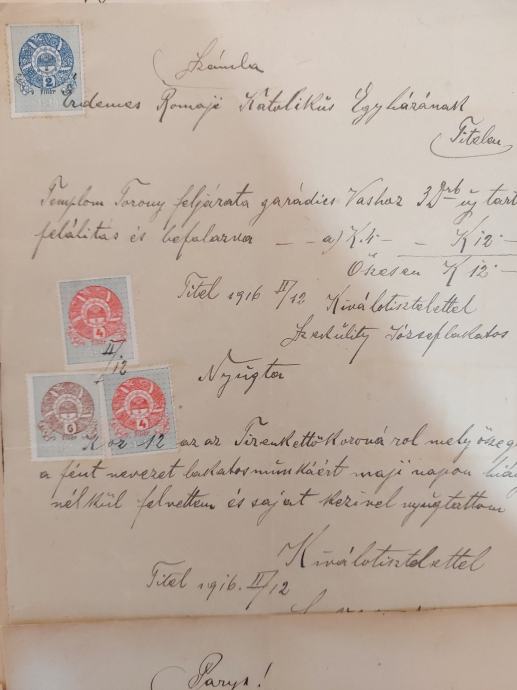 Számla
2
fillér
Érdemes Romaji Katolikus Egyházának
Titelen
Templom Torony feljárata garádics Vashoz 3 Drb uj tart
felálitás és befalazva — — a) K 4 — — K 12 —
Öszesen K 12 —
Titel 1916 II/12 Kiválotisztelettel
József lakatos
4
II/12
Nyugta
6
4
Kor 12 az az Tizenkettökoronárol mely öszeg
a fént nevezet lakatosmunkáért maji napon hiá
nélkül felvettem és saját kezivel nyugtattom
Kiválotisztelettel
Titel 1916. II/12